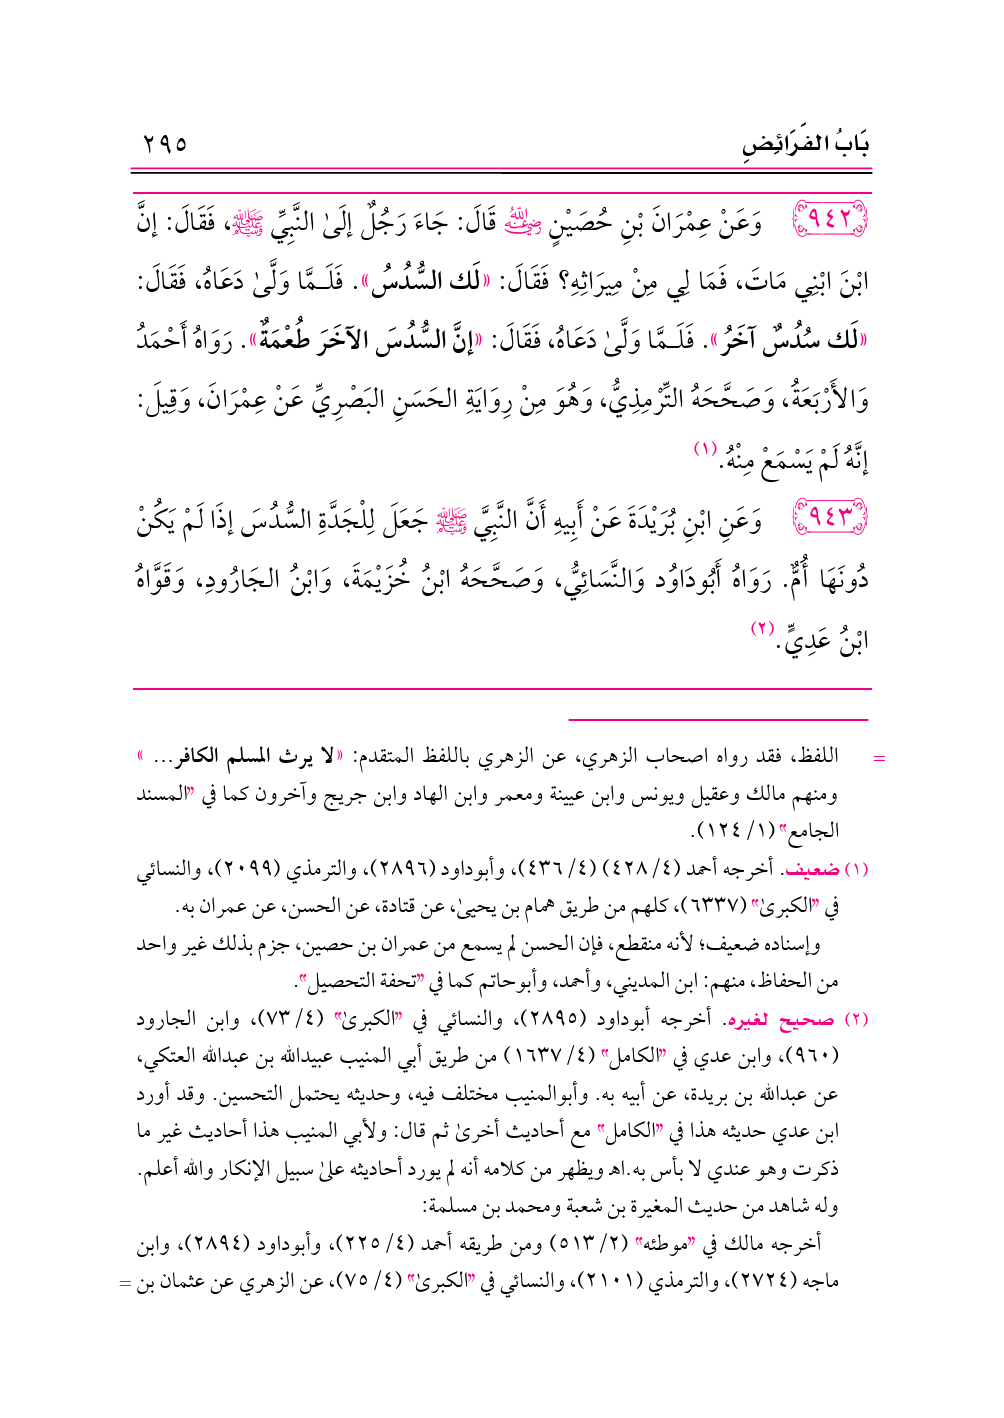 بَابُ الفَرَائِضِ ٢٩٥
٩٤٢ وَعَنْ عِمْرَانَ بْنِ حُصَيْنٍ رضي الله عنه قَالَ: جَاءَ رَجُلٌ إلَىٰ النَّبِيِّ ﷺ، فَقَالَ: إنَّ
ابْنَ ابْنِي مَاتَ، فَمَا لِي مِنْ مِيرَاثِهِ؟ فَقَالَ: «لَك السُّدُسُ». فَلَـمَّا وَلَّىٰ دَعَاهُ، فَقَالَ:
«لَك سُدُسٌ آخَرُ». فَلَـمَّا وَلَّىٰ دَعَاهُ، فَقَالَ: «إنَّ السُّدُسَ الآخَرَ طُعْمَةٌ». رَوَاهُ أَحْمَدُ
وَالأَرْبَعَةُ، وَصَحَّحَهُ التِّرْمِذِيُّ، وَهُوَ مِنْ رِوَايَةِ الحَسَنِ البَصْرِيِّ عَنْ عِمْرَانَ، وَقِيلَ:
إنَّهُ لَمْ يَسْمَعْ مِنْهُ.(١)
٩٤٣ وَعَنِ ابْنِ بُرَيْدَةَ عَنْ أَبِيهِ أَنَّ النَّبِيَّ ﷺ جَعَلَ لِلْجَدَّةِ السُّدُسَ إذَا لَمْ يَكُنْ
دُونَهَا أُمٌّ. رَوَاهُ أَبُودَاوُد وَالنَّسَائِيُّ، وَصَحَّحَهُ ابْنُ خُزَيْمَةَ، وَابْنُ الجَارُودِ، وَقَوَّاهُ
ابْنُ عَدِيٍّ.(٢)
= اللفظ، فقد رواه اصحاب الزهري، عن الزهري باللفظ المتقدم: «لا يرث المسلم الكافر... »
ومنهم مالك وعقيل ويونس وابن عيينة ومعمر وابن الهاد وابن جريج وآخرون كما في "المسند
الجامع" (١/ ١٢٤).
(١) ضعيف. أخرجه أحمد (٤/ ٤٢٨) (٤/ ٤٣٦)، وأبوداود (٢٨٩٦)، والترمذي (٢٠٩٩)، والنسائي
في "الكبرىٰ" (٦٣٣٧)، كلهم من طريق همام بن يحيىٰ، عن قتادة، عن الحسن، عن عمران به.
وإسناده ضعيف؛ لأنه منقطع، فإن الحسن لم يسمع من عمران بن حصين، جزم بذلك غير واحد
من الحفاظ، منهم: ابن المديني، وأحمد، وأبوحاتم كما في "تحفة التحصيل".
(٢) صحيح لغيره. أخرجه أبوداود (٢٨٩٥)، والنسائي في "الكبرىٰ" (٤/ ٧٣)، وابن الجارود
(٩٦٠)، وابن عدي في "الكامل" (٤/ ١٦٣٧) من طريق أبي المنيب عبيدالله بن عبدالله العتكي،
عن عبدالله بن بريدة، عن أبيه به. وأبوالمنيب مختلف فيه، وحديثه يحتمل التحسين. وقد أورد
ابن عدي حديثه هذا في "الكامل" مع أحاديث أخرىٰ ثم قال: ولأبي المنيب هذا أحاديث غير ما
ذكرت وهو عندي لا بأس به.اهـ ويظهر من كلامه أنه لم يورد أحاديثه علىٰ سبيل الإنكار والله أعلم.
وله شاهد من حديث المغيرة بن شعبة ومحمد بن مسلمة:
أخرجه مالك في "موطئه" (٢/ ٥١٣) ومن طريقه أحمد (٤/ ٢٢٥)، وأبوداود (٢٨٩٤)، وابن
ماجه (٢٧٢٤)، والترمذي (٢١٠١)، والنسائي في "الكبرىٰ" (٤/ ٧٥)، عن الزهري عن عثمان بن =